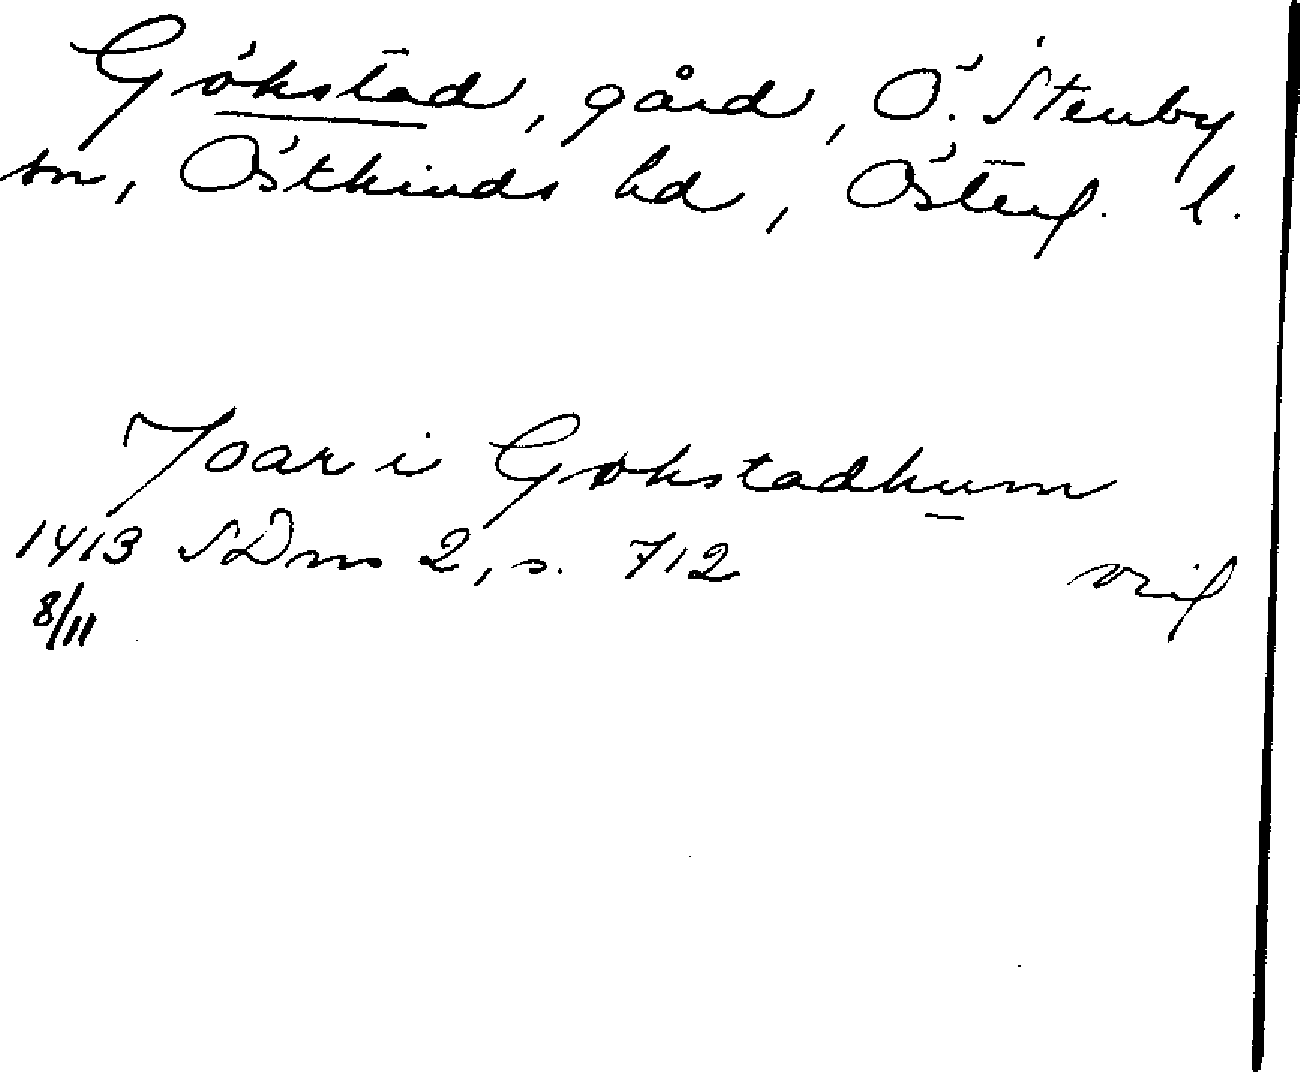 Gökstad, gård, Ö. Stenby
sn, Östkinds hd, Österg. l.
Joar i Gøkstadhum
1413 SDns 2, s. 712
8/11